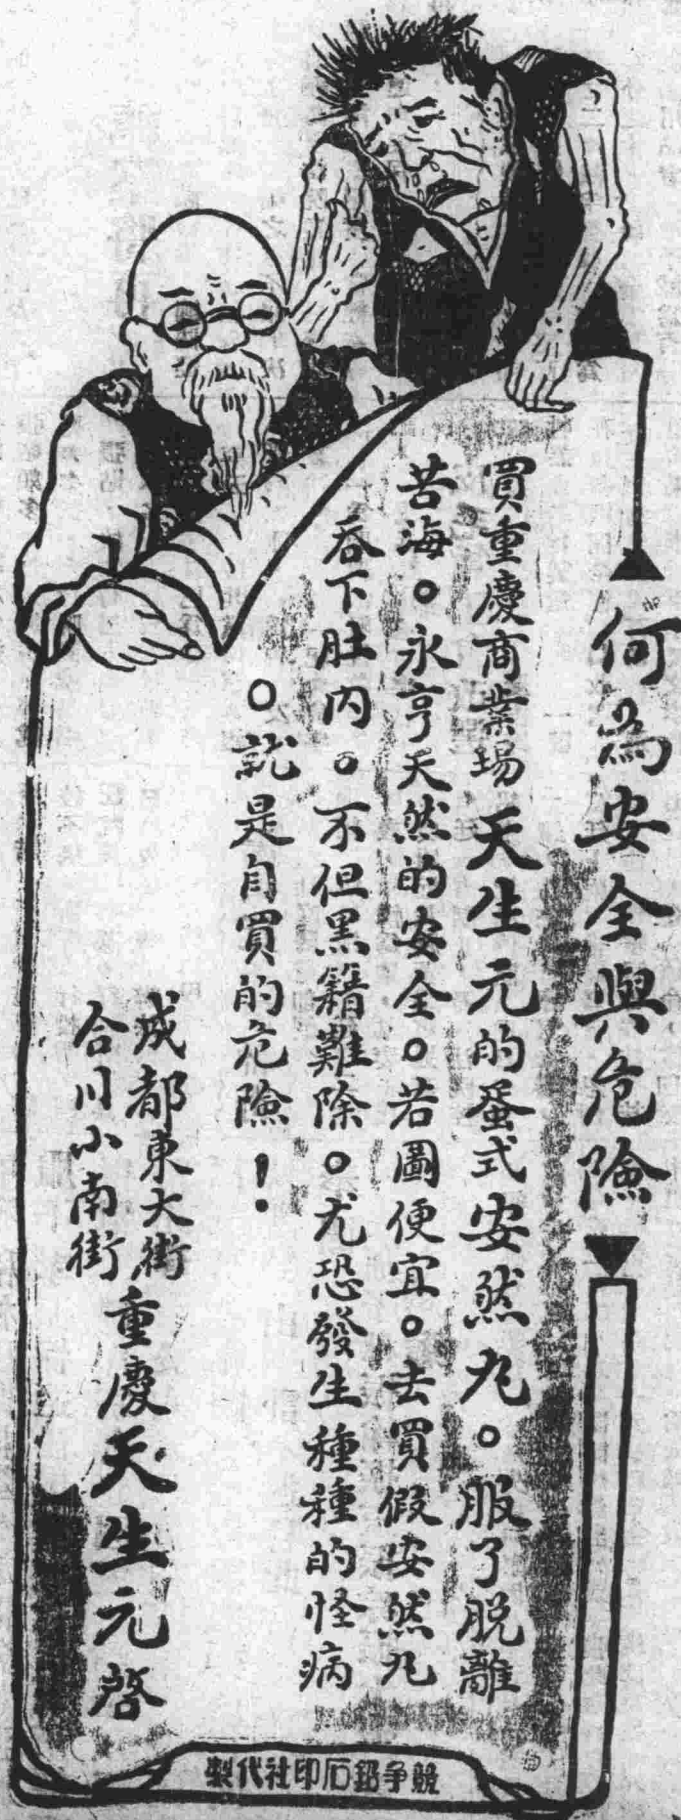 何為安全與危險
買重慶商業場天生元的蛋式安然丸。服了脱離
苦海。永亨天然的安全。若圖便宜。去買假安然丸
吞下肚内。不但黑籍難除。尤恐發生種種的怪病
。就是自買的危險！
成都東大街
合川小南街
重慶天生元啓
競爭鋁石印社代製